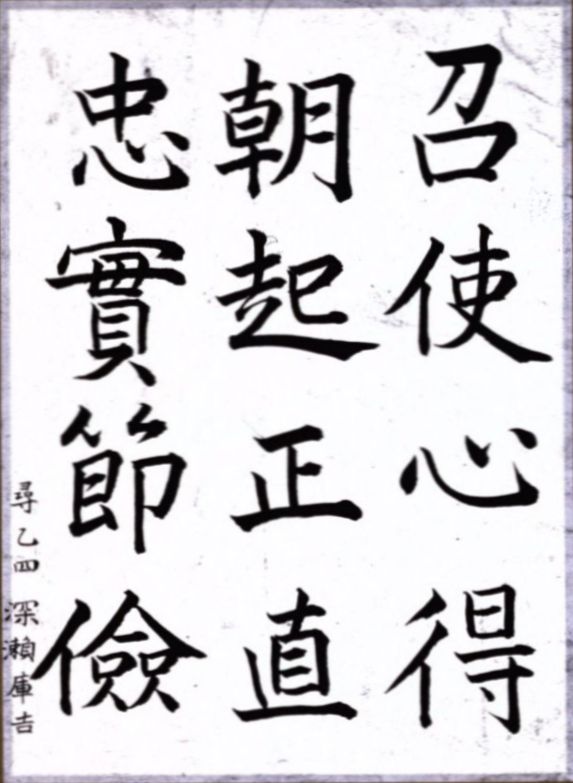 召使心得
朝起正直
忠實節儉
尋乙四 深瀨庫吉